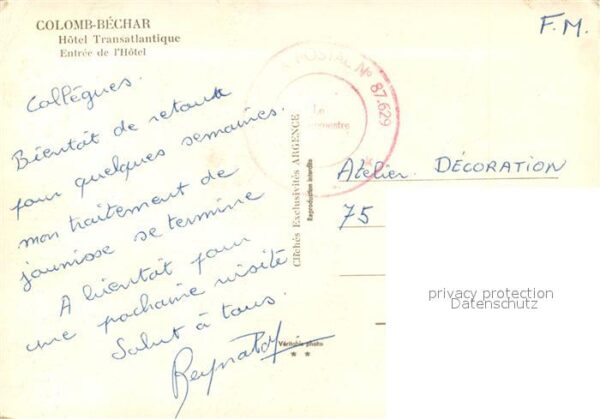 COLOMB-BÉCHAR
Hôtel Transatlantique
Entrée de l'Hôtel
Collègues.
Bientôt de retour
pour quelques semaines.
mon traitement de
jaunisse se termine
A bientôt pour
une prochaine visite
Salut à tous.
F.M.
POSTAL Nº 87.629
Le
Clichés Exclusivités ARGENCE
Reproduction interdite
Véritable photo
Atelier DÉCORATION
75
privacy protection
Datenschutz